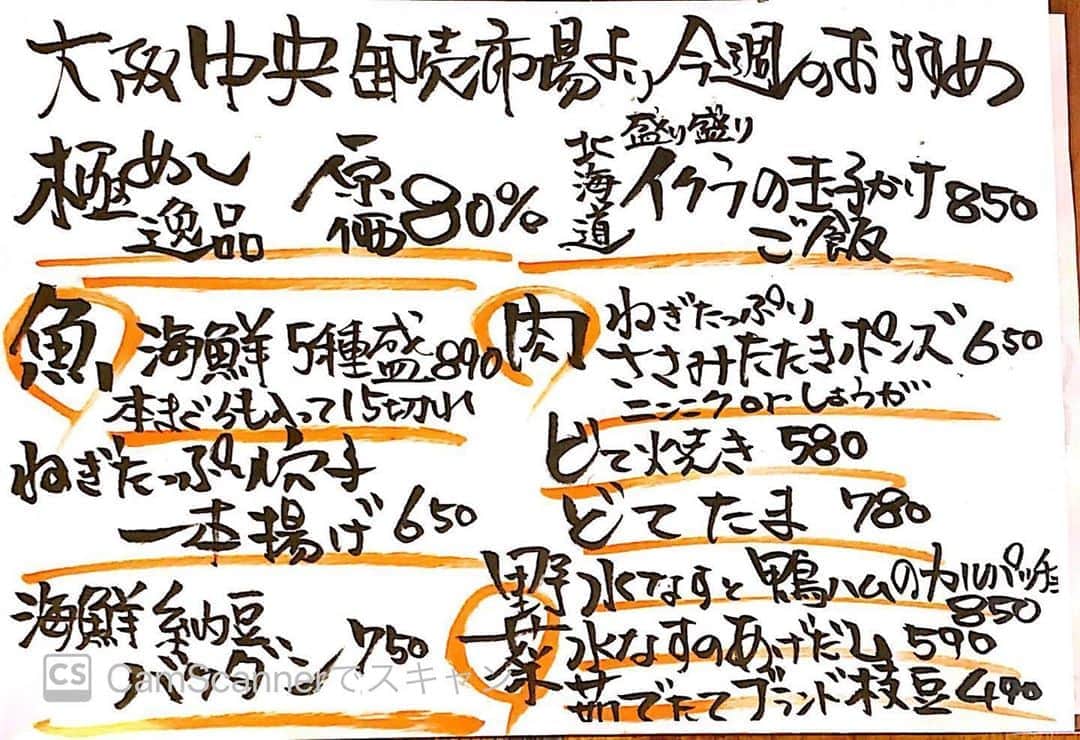 大阪中央卸売市場より今週のおすすめ
極めし逸品 原価80%
北海道 盛り盛り
イクラの玉子かけ 850
ご飯
魚 海鮮5種盛 890
本まぐろも入って15切れ
ねぎたっぷり穴子
一本揚げ 650
海鮮納豆、
バクダン 750
肉 ねぎたっぷり
ささみたたきポンズ 650
ニンニク or しょうが
どて焼き 580
どてたま 780
野菜 水なすと鴨ハムのカルパッチョ
850
水なすのあげだし 590
茹でたてブランド枝豆 490
CS CamScannerでスキャン